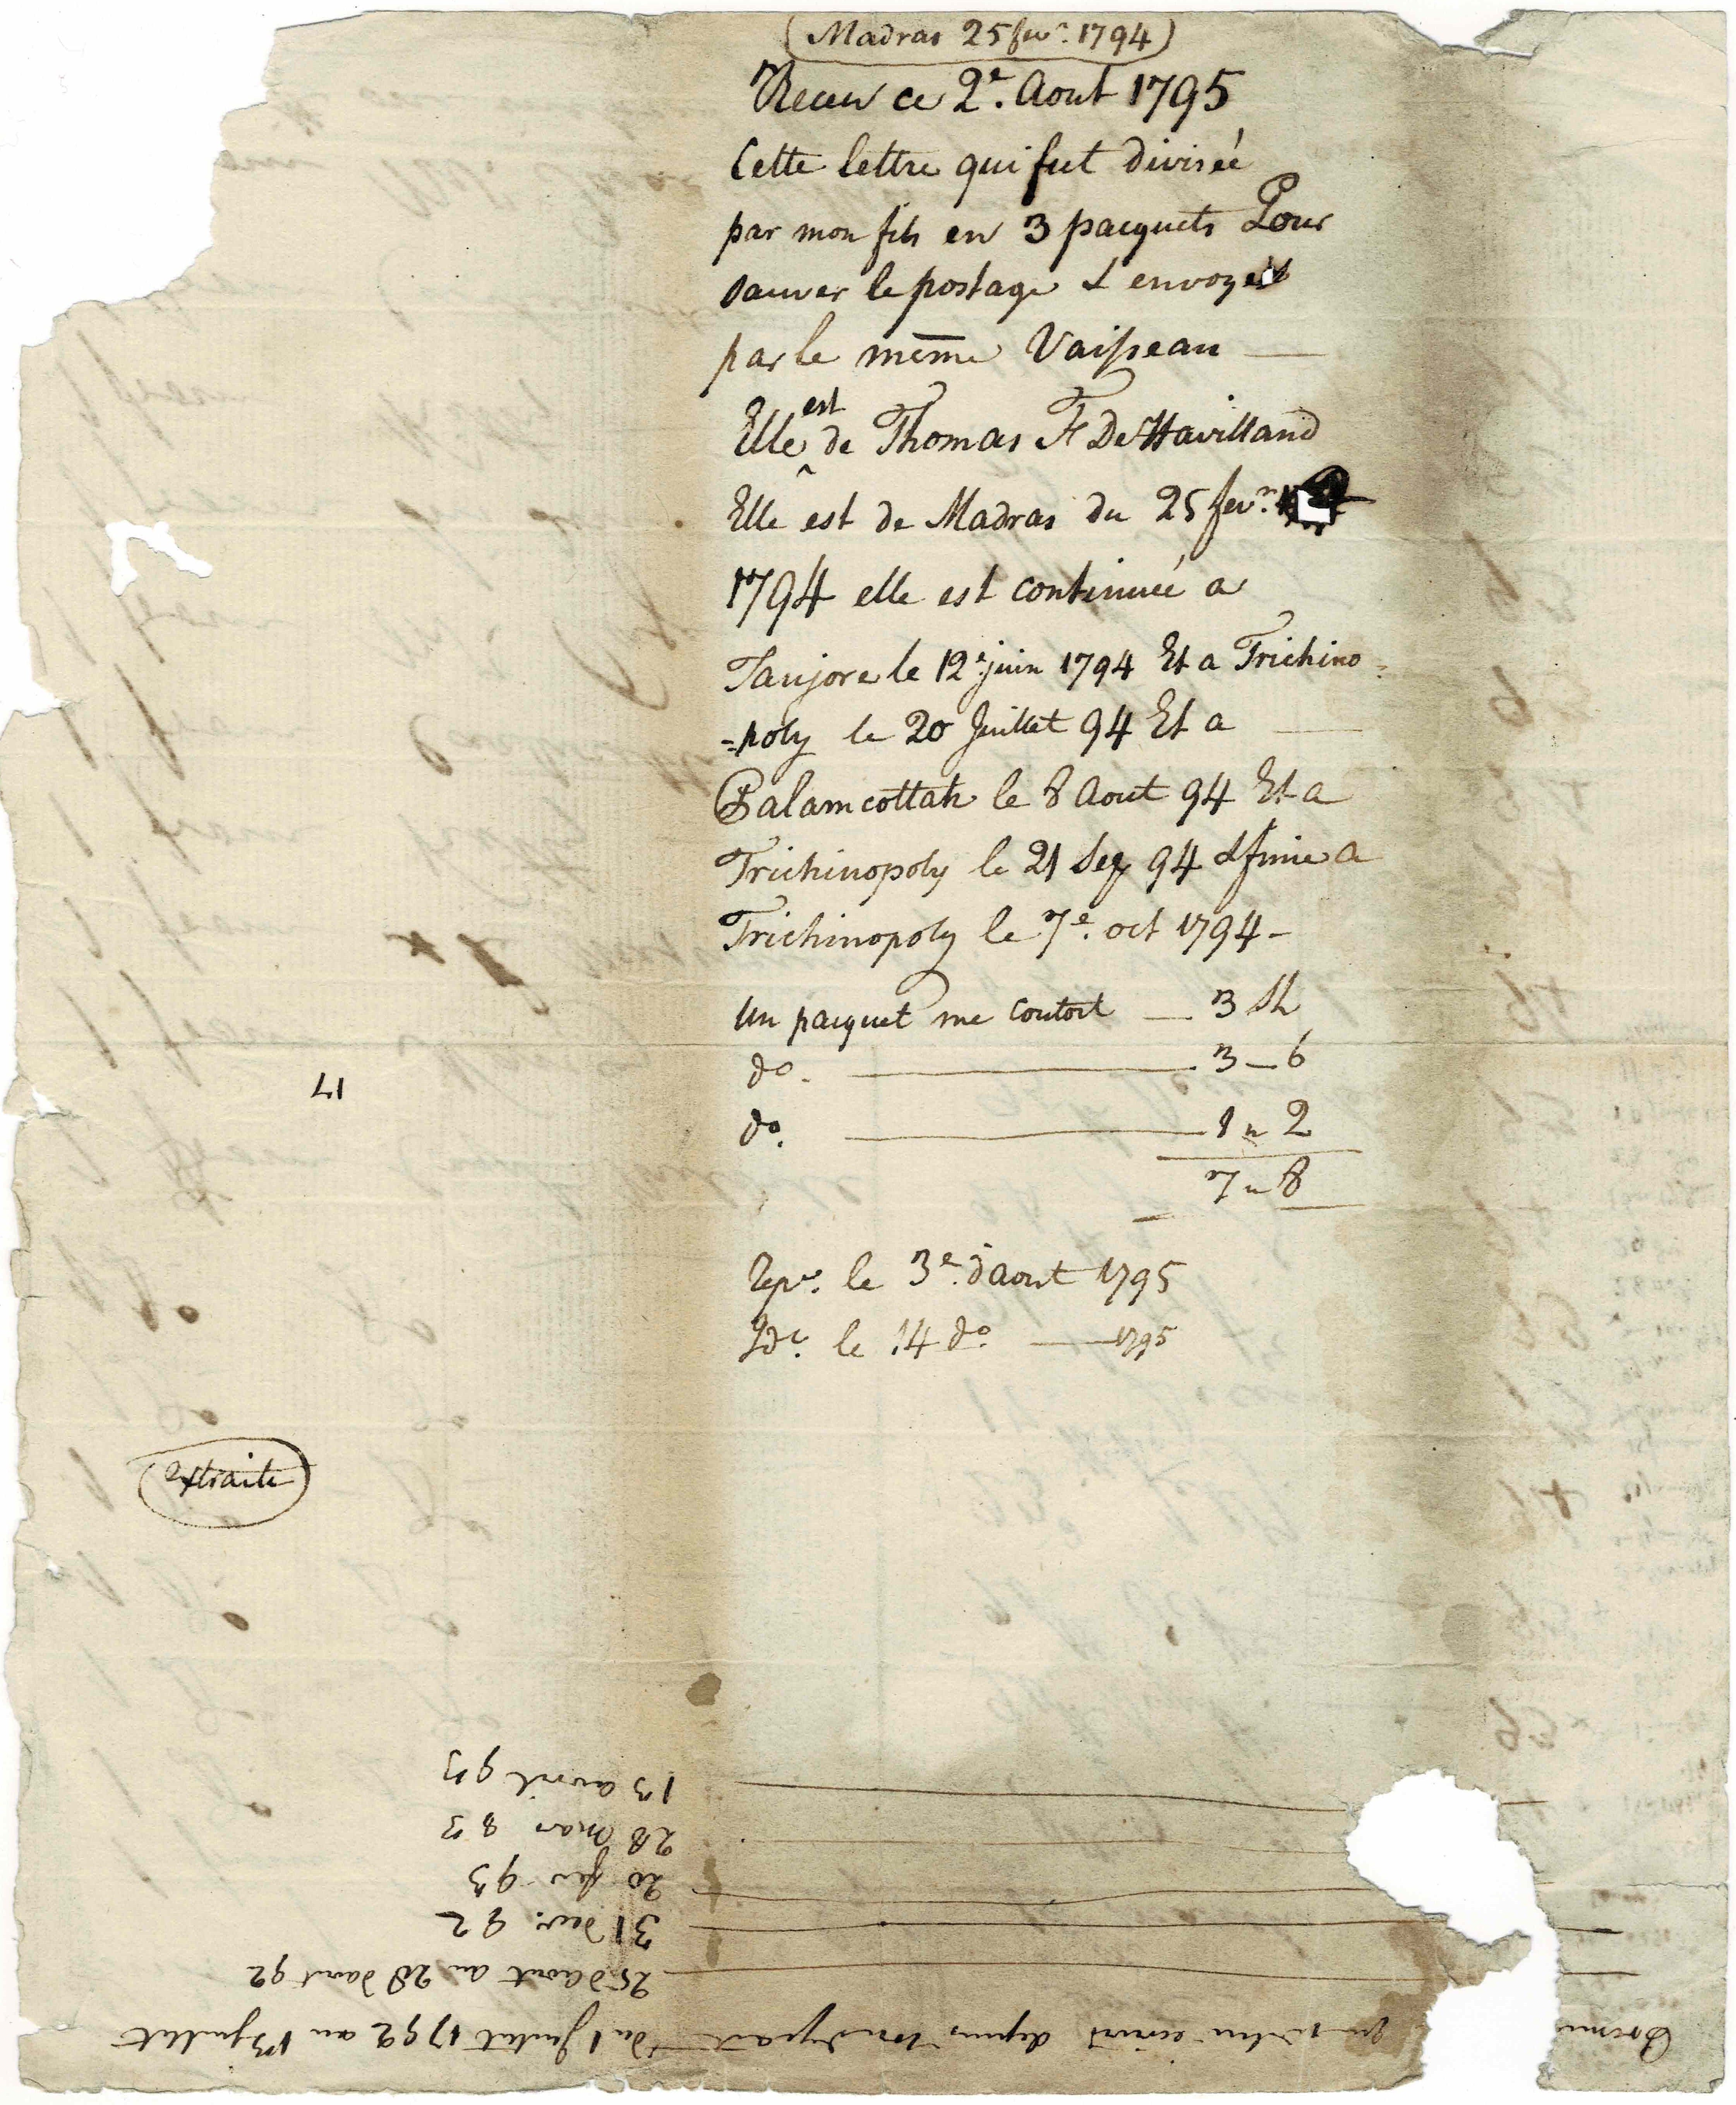 (Madras 25 fevr. 1794)
Receu ce 2e. Aout 1795
Cette lettre qui fut divisée
par mon fils en 3 pacquets Pour
sauver le postage & envoyer
par le même Vaisseau —
Elle est de Thomas F De Havilland
Elle est de Madras du 25 fevr.
1794 elle est continueé a
Tanjore le 12e juin 1794 Et a Trichino=
=poly le 20 Juillet 94 Et a —
Palamcottah le 8 Aout 94 Et a
Trichinopoly le 21 Sep 94 & finie a
Trichinopoly le 7e. oct 1794 -
Un pacquet me coutoit — 3 Sh
do. — 3 — 6
do. — 1 " 2
7 " 8
Repe. le 3e. d'aout 1795
Ide. le 14 do — 1795
17
extraite
depuis son depart du 1 Juillet 1792 au 13 juillet
25 d'aout au 28 d'aout 92
31 decr. 92
20 fev 93
28 mar 93
13 avril 93